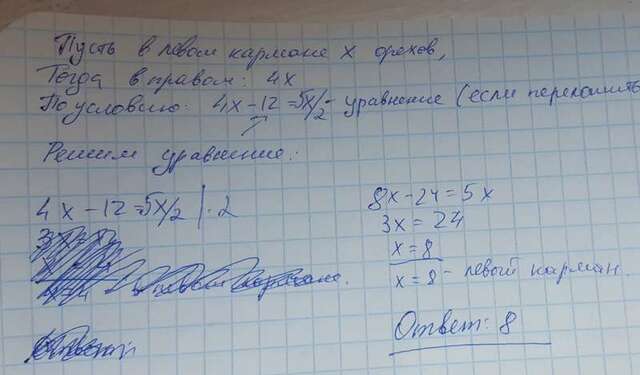 Пусть в левом кармане x орехов,
Тогда в правом: 4x
По условию: 4x - 12 = 5x/2 - уравнение (если переложить
Решим уравнение:
4x - 12 = 5x/2 | · 2
8x - 24 = 5x
3x = 24
x = 8
x = 8 - левый карман.
Ответ: 8